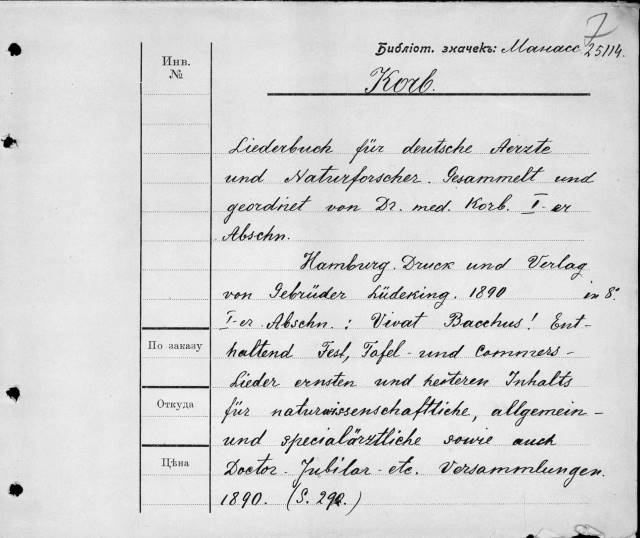 7
Библіот. значекъ: Манасс 25/14.
Инв. №
Korb.
Liederbuch für deutsche Aerzte
und Naturforscher. Gesammelt und
geordnet von Dr. med. Korb. I-er
Abschn.
Hamburg. Druck und Verlag
von Gebrüder Lüdeking. 1890 in 8°
I-er Abschn.: Vivat Bacchus! Ent-
По заказу
haltend Fest, Tafel- und Commers-
Lieder ernsten und heiteren Inhalts
Откуда
für naturwissenschaftliche, allgemein-
und specialärztliche sowie auch
Цѣна
Doctor- Jubilar- etc. Versammlungen.
1890. (S. )